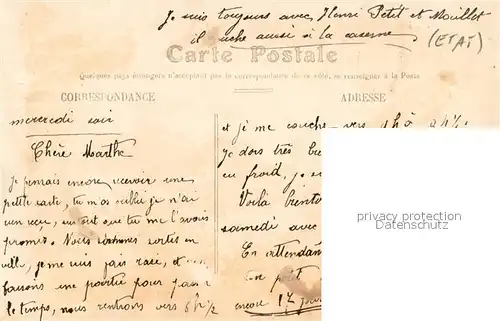 Je suis toujours avec Henri Petit et Mouillet
il couche aussi à la caserne
(ETAT)
Carte Postale
Quelques pays étrangers n'acceptent pas la correspondance de ce côté, se renseigner à la Poste
CORRESPONDANCE
ADRESSE
mercredi soir
Chère Marthe
Je pensais encore recevoir une
petite carte, tu m'as oublié je n'ai
rien reçu, surtout que tu me l'avais
promis. Nous sommes sortis en
ville, je me suis fait rasé, et
faisons une partie pour passer
le temps, nous rentrons vers 8h 1/2
et je me couche vers 9h à 9h 1/2
je dors très
eu froid, je
Voilà bientôt
samedi avec
En attendant
un petit
encore 17 jours
privacy protection
Datenschutz